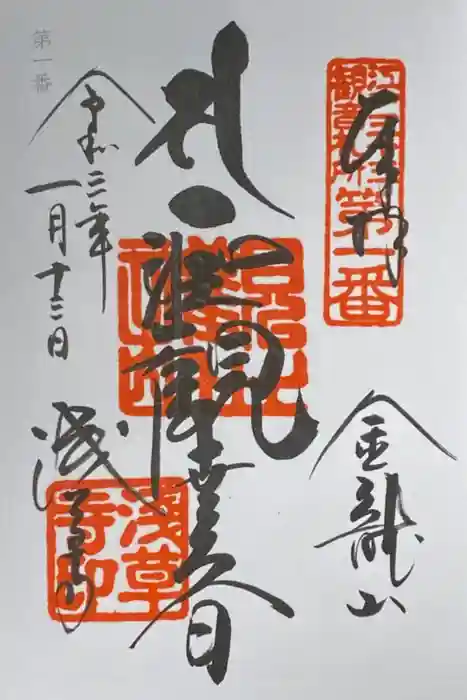 奉拝
江戸三十三
観音札所
第一番
金龍山
聖観世音
令和三年
一月十三日
浅草寺
浅草
寺印
第一番